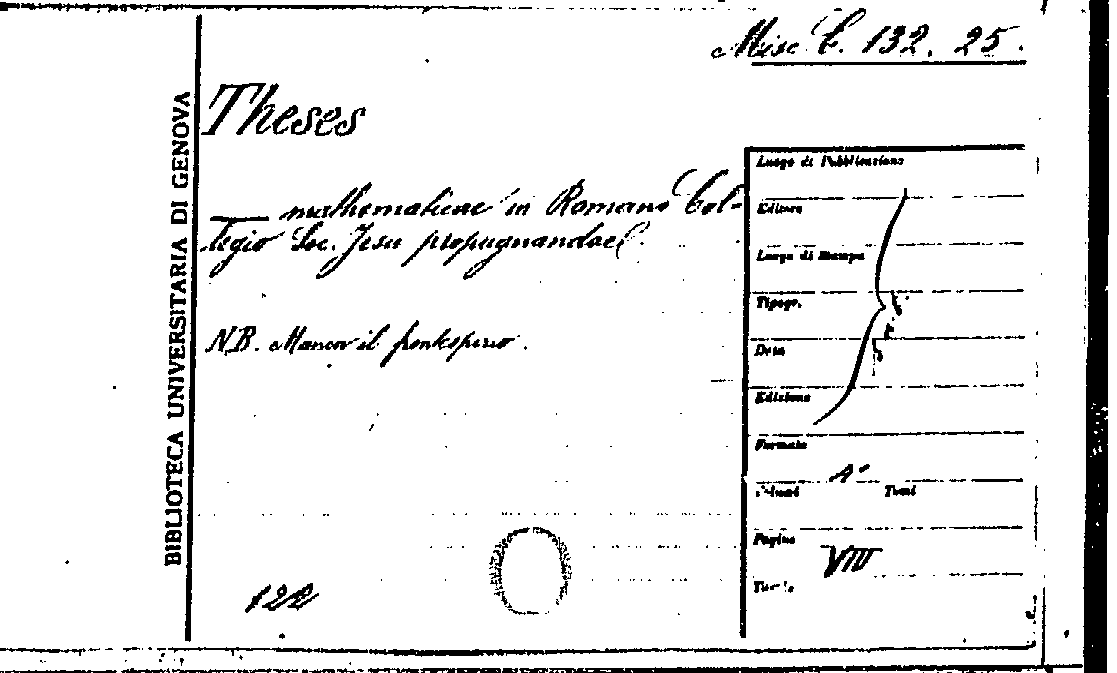 Misc. C. 132. 25.
BIBLIOTECA UNIVERSITARIA DI GENOVA
Theses
—— mathematicae in Romano Col-
legio Soc. Jesu propugnandae.
N.B. Manca il frontespizio.
122
Luogo di Pubblicazione
Editore
Luogo di Stampa
Tipogr.
Data
Edizione
Formato
Volumi 4° Tomi
Pagine
VIII
Tavole